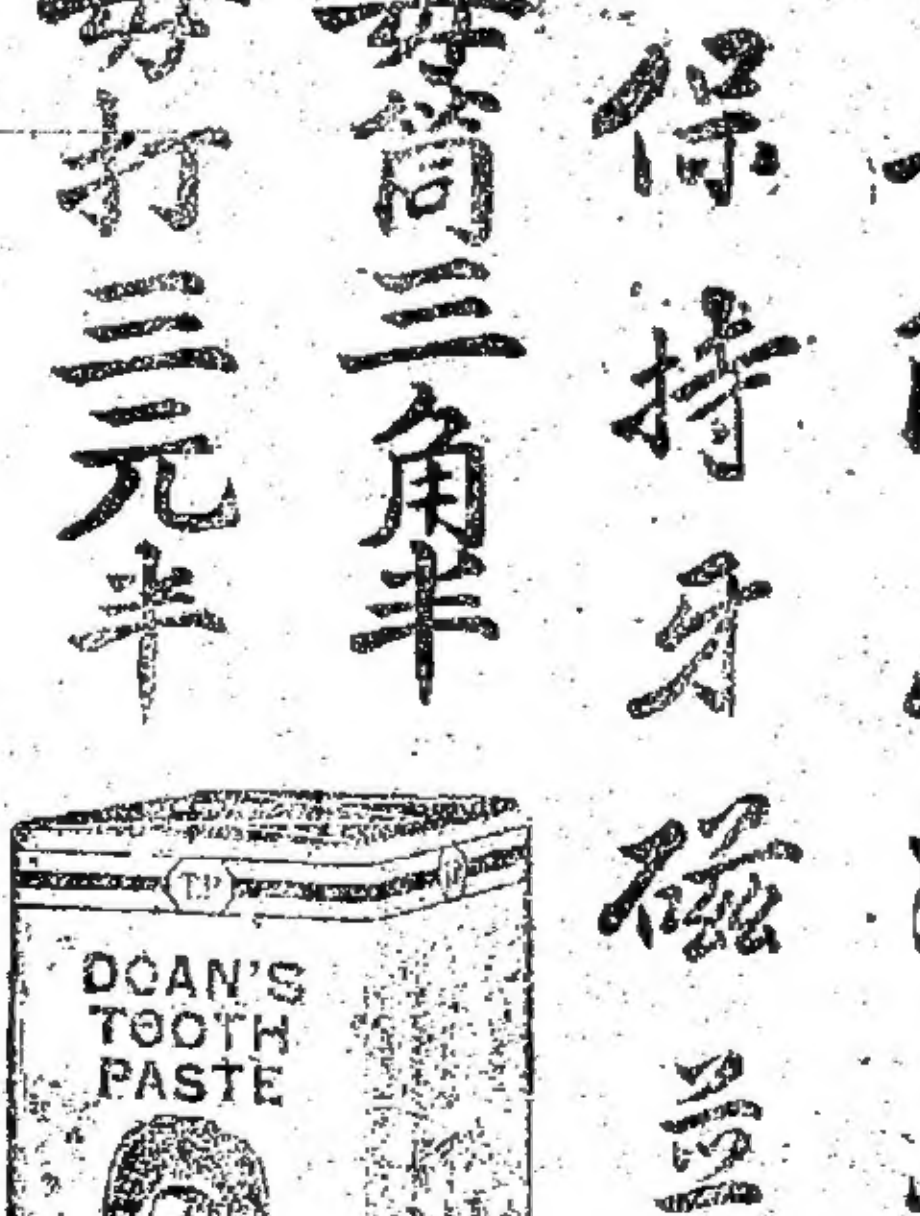 保持牙磁
每筒三角半
每打三元半
T.P
DOAN'S
TOOTH
PASTE